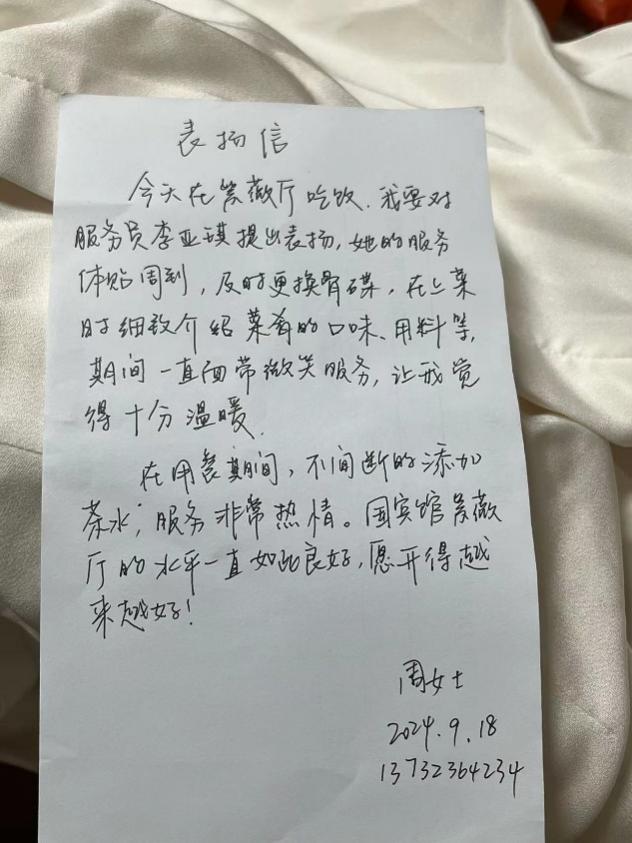 表扬信
今天在蔷薇厅吃饭.我要对
服务员李亚琪提出表扬,她的服务
体贴周到,及时更换骨碟,在上菜
时细致介绍菜肴的口味、用料等,
期间一直面带微笑服务,让我觉
得十分温暖.
在用餐期间,不间断的添加
茶水,服务非常热情。国宾馆蔷薇
厅的水平一直如此良好,愿开得越
来越好!
周女士
2024.9.18
13732364234